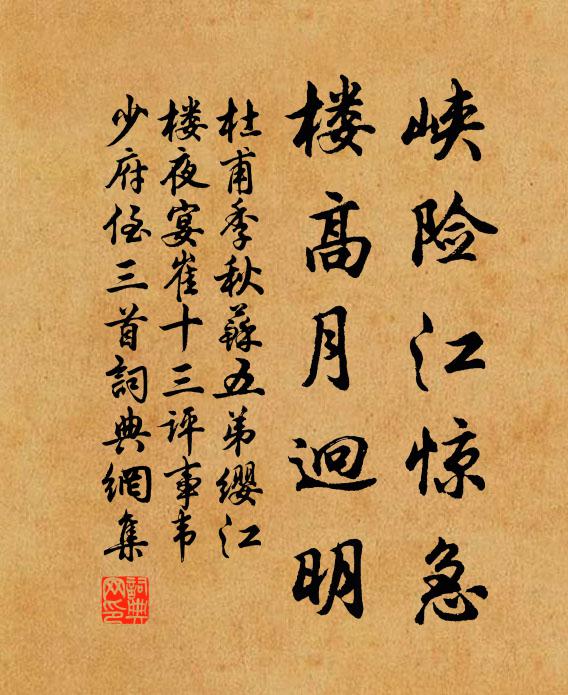 峡险江惊急
楼高月迥明
杜甫季秋蘇五弟缨江
楼夜宴崔十三评事韦
少府侄三首詞典網集
詞典
网印